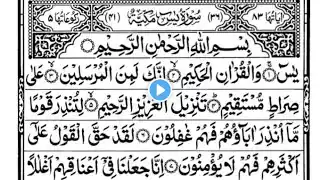 اٰیَاتُهَا ۸۳ (۳۶) سُوْرَةُ یٰسٓ مَكِّیَّةٌ (۴۱) رُكُوْعَاتُهَا ۵
بِسْمِ اللّٰهِ الرَّحْمٰنِ الرَّحِیْمِ
یٰسٓ ۚ وَالْقُرْاٰنِ الْحَكِیْمِ ۙ اِنَّكَ لَمِنَ الْمُرْسَلِیْنَ ۙ عَلٰی
صِرَاطٍ مُّسْتَقِیْمٍ ؕ تَنْزِیْلَ الْعَزِیْزِ الرَّحِیْمِ ۙ لِتُنْذِرَ قَوْمًا
مَّاۤ اُنْذِرَ اٰبَآؤُهُمْ فَهُمْ غٰفِلُوْنَ لَقَدْ حَقَّ الْقَوْلُ عَلٰۤی
اَكْثَرِهِمْ فَهُمْ لَا یُؤْمِنُوْنَ اِنَّا جَعَلْنَا فِیْۤ اَعْنَاقِهِمْ اَغْلٰلًا